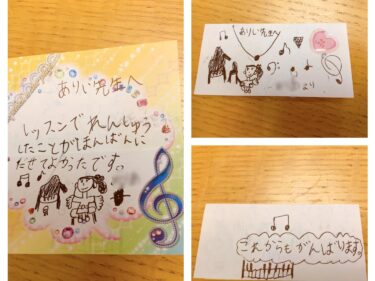 ありじ先生へ
レッスンでれんしゅう
したことがほんばんに
だせてよかったです。
ありじ先生へ
より
これからもがんばります。